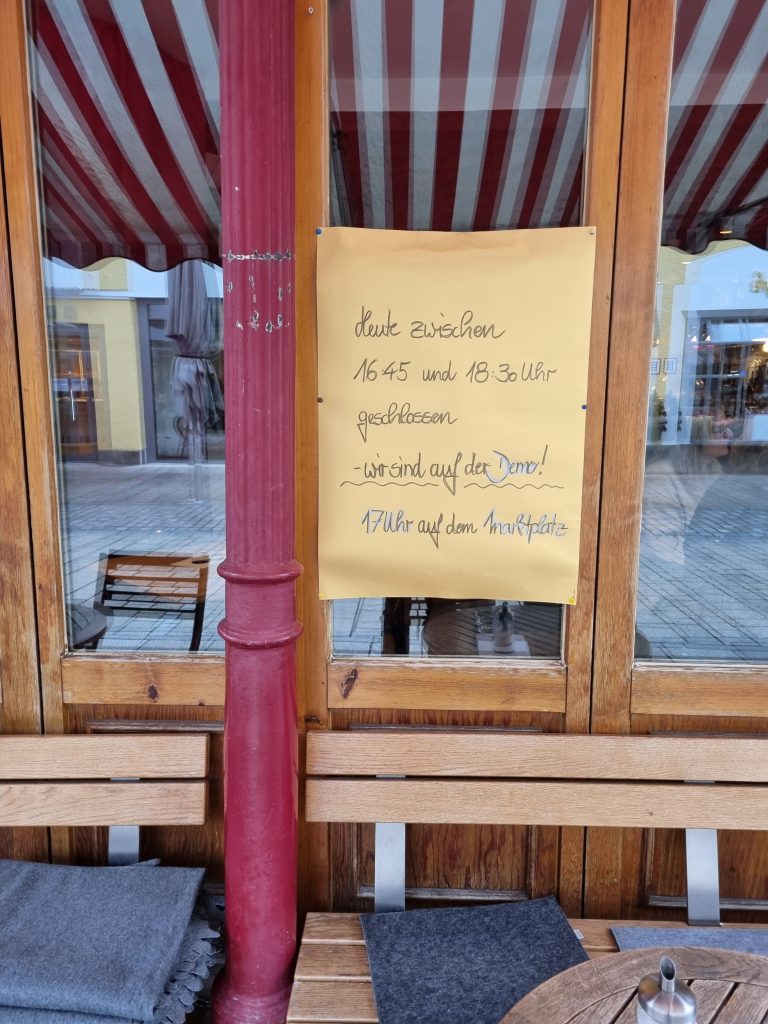 Heute zwischen
16:45 und 18:30 Uhr
geschlossen
- wir sind auf der Demo!
17 Uhr auf dem Marktplatz